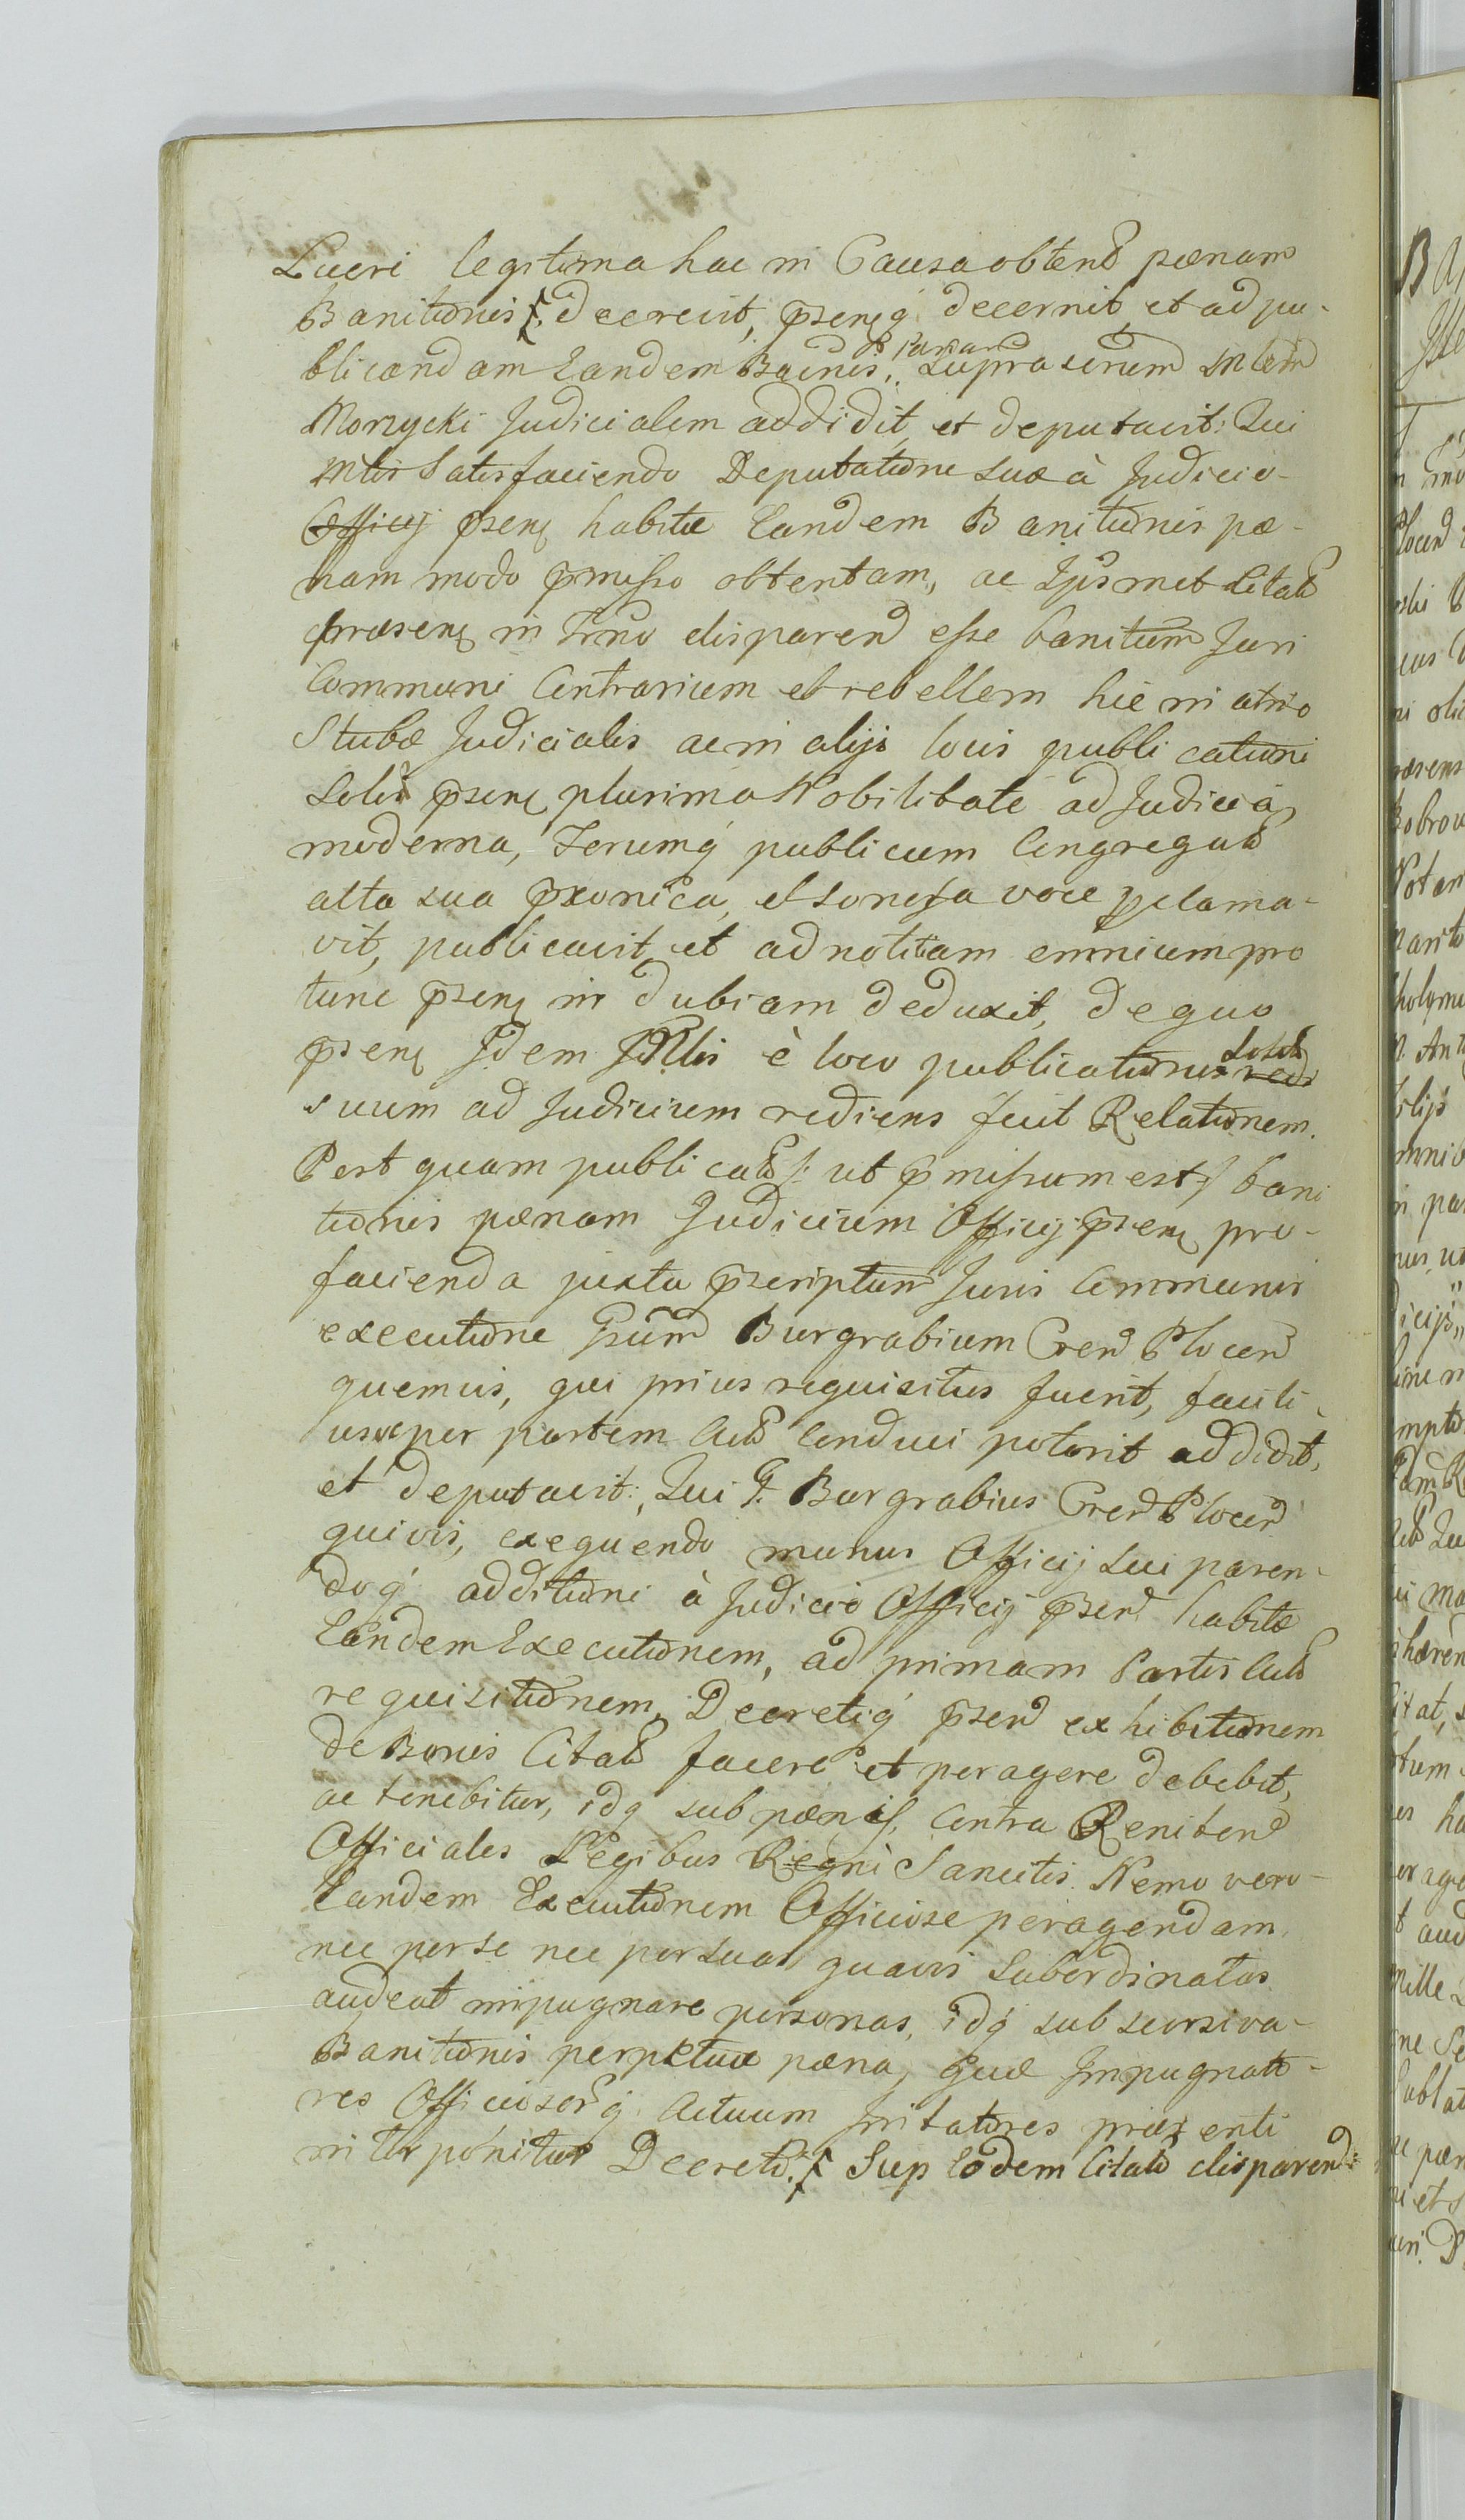 Lucri legitima hac in Causa obtend pœnam
Banitionis decrevit, pseng decernit, et ad pu-
blicandam Eandem Baenis. Pœnam supra scrium Mlem
Morzycki Judicialem addidit, et deputavit: Qui
Mlis satisfaciendo Deputatione sua à Judicio
Officij psen habitæ Eandem Banitionis pæ-
nam modo pmisso obtentam, ac Ipsmet Citatd
præsen in Trno disparend esse banitum Juri
Communi Contrarium et rebellem hic in atrio
Stubæ Judicialis ac in alijs locis publicationi
solis psen plurima Nobilitate ad Judicia
moderna, Forumq publicum Congregatd
alta sua pxonica, et sonora voce pclama-
vit, publicavit, et ad notitiam omnium pro
tunc psen in dubiam deduxit, de quo
psen Idem Mlis è loco publicationis solit
suum ad Judicium rediens fecit Relationem.
Post quam publicatd ut pmissum est bani
tionis pænam Judicium Officij psen pro-
facienda juxta pscriptum Juris Communis
executione Gsum Burgrabium Cren Plocen
quemvis, qui prius requisitus fuerit, facili-
usve per partem Actd Conduci poterit addidit,
et deputavit: Qui G. Burgrabius Cren Plocen
quivis, exequendo munus Officij sui paren-
doq additioni à Judicio Officij psen habitæ
Eandem Executionem, ad primam Partis Actd
requisitionem, Decretiq psen exhibitionem
de Bonis Citatd facere et peragere debebit,
ac tenebitur, idq sub pænis, Contra Renitend
Officiales Legibus Regni Sancitis. Nemo vero
Eandem Executionem Officiose peragendam,
nec per se nec per suas quavis subordinatas
audeat impugnare personas, idq sub seorsiva
Banitionis perpetuæ pæna, quæ Impugnato-
res Officiosorq Actuum Irritatores præsenti
interponitur Decreto. Sup Eodem Citato disparend: